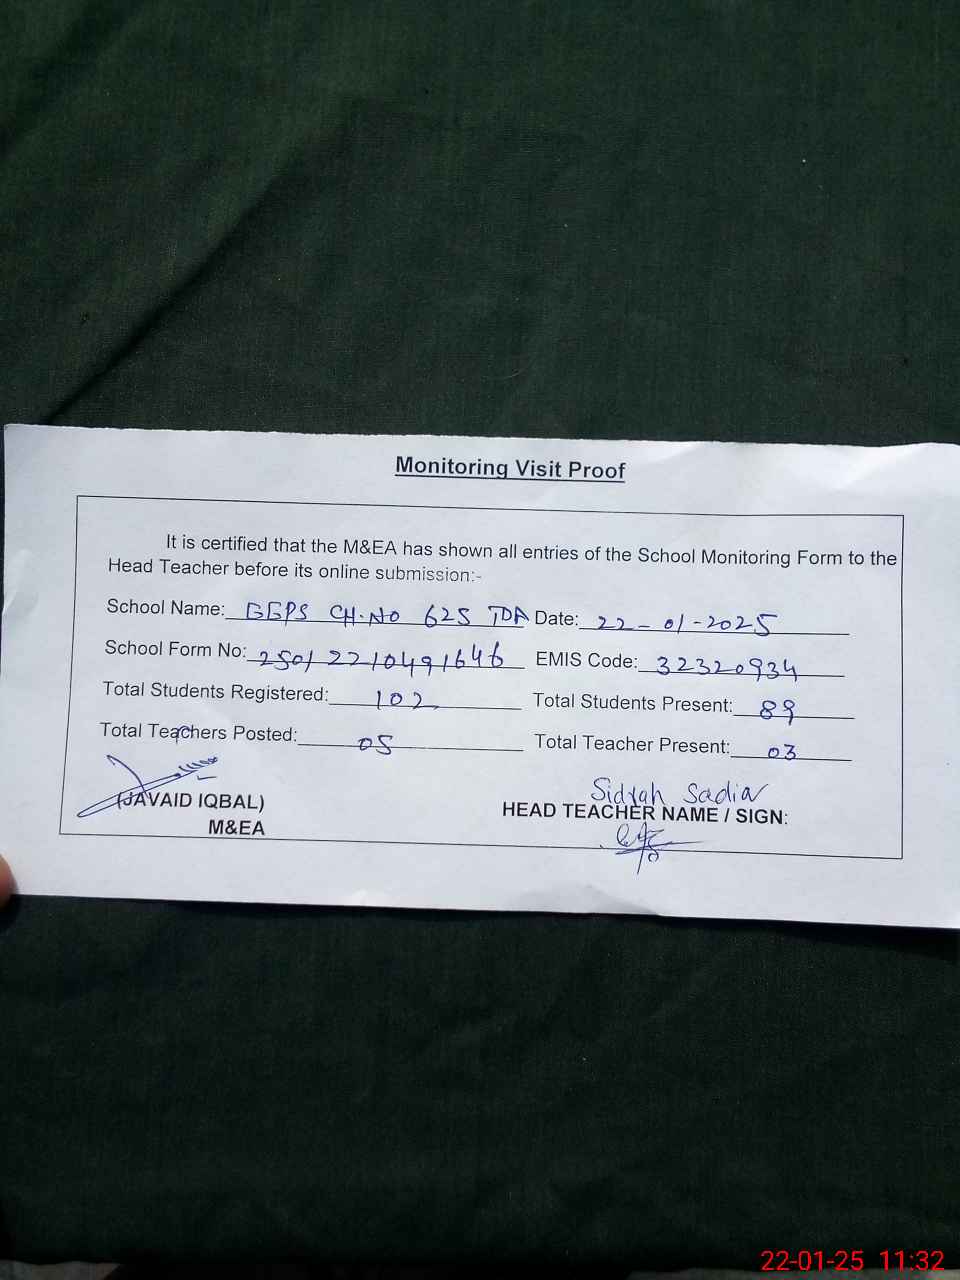 Monitoring Visit Proof
It is certified that the M&EA has shown all entries of the School Monitoring Form to the
Head Teacher before its online submission:-
School Name: GGPS CH.NO 625 TDA Date: 22-01-2025
School Form No: 2501221049 1646 EMIS Code: 32320934
Total Students Registered: 102 Total Students Present: 89
Total Teachers Posted: 05 Total Teacher Present: 03
(JAVAID IQBAL)
M&EA
Sidrah Sadia
HEAD TEACHER NAME / SIGN:
22-01-25 11:32